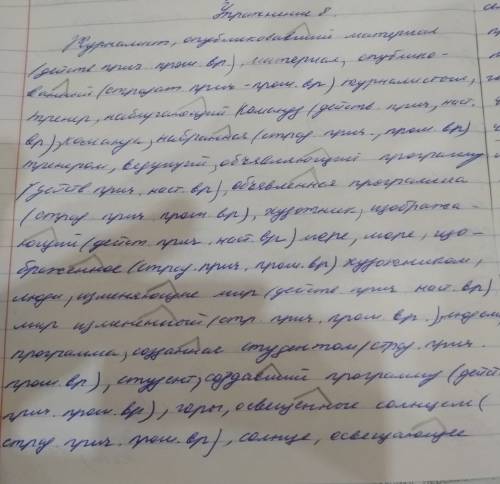 Упражнение 8.
Журналист, опубликовавший материал
(действ прич. прош. вр), материал, опублико-
ванный (страдат прич - прош. вр) журналистом,
тренер, набирающий команду (действ. прич, наст.
вр), команда, набранная (страд прич., прош. вр)
тренером, ведущий, объявляющий программу
(действ прич. наст. вр), объявленная программа
(страд прич прош вр), художник, изобража-
ющий (действ прич. наст. вр) море, море, изо-
браженное (страд. прич. прош. вр) художником,
люди, изменяющие мир (действ прич наст. вр)
мир изменённый (стр прич. прош вр.), людьми
программа, созданная студентом (страд. прич.
прош. вр), студент, создавший программу (дейст
прич. прош. вр), горы, освещённые солнцем (
страд. прич. прош. вр), солнце, освещающее